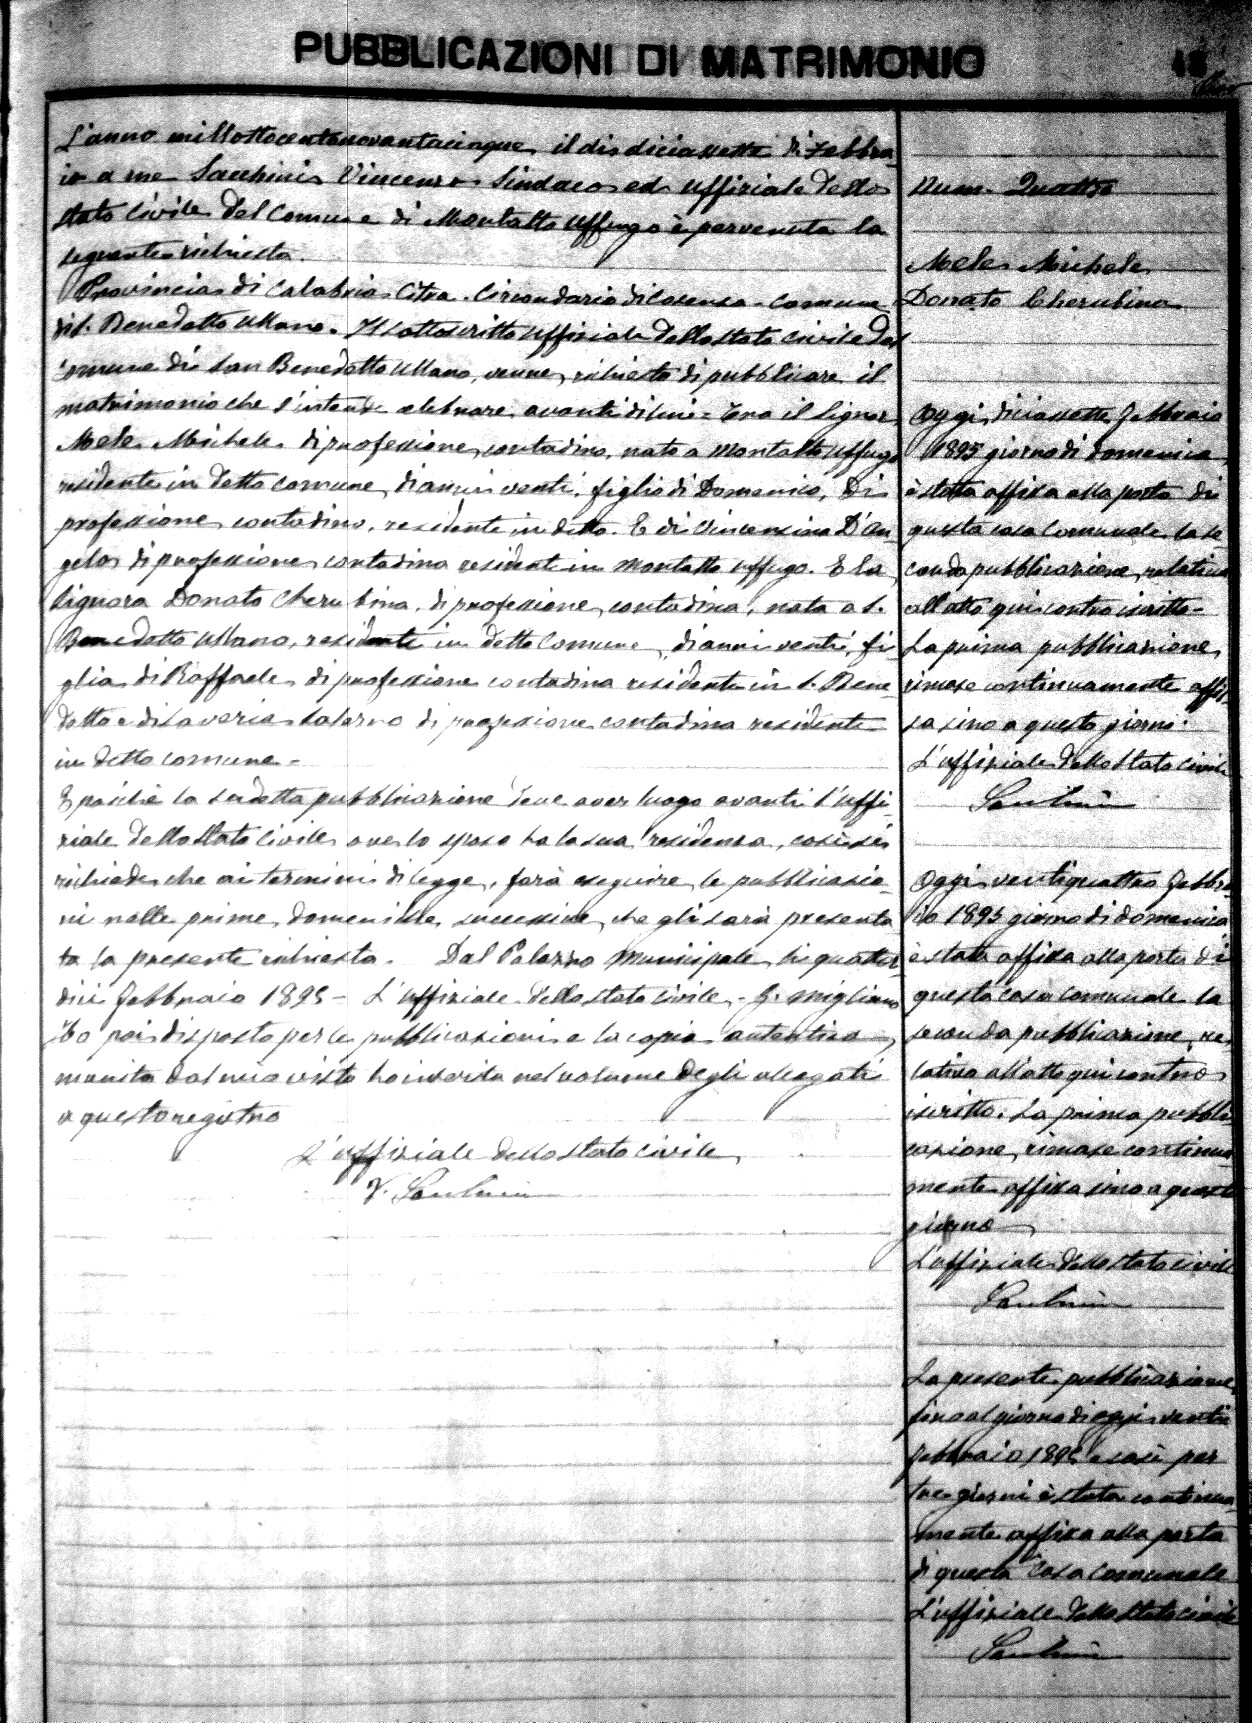 PUBBLICAZIONI DI MATRIMONIO
L'anno millottocentonovantacinque, il dì diciassette di Febbra-
io a me Sacchini Vincenzo Sindaco ed uffiziale dello
stato civile del Comune di Montalto Uffugo è pervenuta la
seguente richiesta.
Provincia di Calabria Citra. Circondario di Cosenza. Comune
di S. Benedetto Ullano. Il sottoscritto uffiziale dello stato civile del
Comune di San Benedetto Ullano, venne, richiesto di pubblicare il
matrimonio che s'intende celebrare avanti di lui = tra il Signor
Mele Michele di professione contadino, nato a Montalto Uffugo
residente in detto comune, di anni venti, figlio di Domenico, di
professione contadino, residente in detto. E di Vincenzina D'An-
gelo di professione contadina residente in Montalto Uffugo. E la
Signora Donato Cherubina, di professione contadina, nata a S.
Benedetto Ullano, residente in detto Comune, di anni venti, fi-
glia di Raffaele di professione contadina residente in S. Bene
detto e di Saveria Salerno di professione contadina residente
in detto comune -
E poichè la sudetta pubblicazione deve aver luogo avanti l'uffi-
ziale dello Stato Civile ove lo sposo ha la sua residenza, così si
richiede che ai termini di legge, farà eseguire le pubblicazio-
ni nelle prime domeniche successive, che gli sarà presenta
ta la presente richiesta. Dal Palazzo Municipale li quattor
dici Febbraio 1895 - L'uffiziale dello stato civile - G. Migliano
Ho poi disposto per le pubblicazioni e la copia autentica
munita dal mio visto ho inserita nel volume degli allegati
a questo registro
L'uffiziale dello stato civile
V. Sacchini
Num. Quattro
Mele Michele
Donato Cherubina
Oggi, diciassette Febbraio
1895 giorno di domenica
è stata affissa alla porta di
questa casa Comunale la se-
conda pubblicazione, relativa
all'atto qui contro iscritto -
La prima pubblicazione,
rimase continuamente affis-
sa sino a questo giorno.
L'uffiziale dello stato civile
Sacchini
Oggi ventiquattro Febbra
io 1895 giorno di domenica
è stata affissa alla porta di
questa casa comunale la
seconda pubblicazione, re-
lativa all'atto qui contro
iscritto. La prima pubbli
cazione, rimase continua
mente affissa sino a questo
giorno
L'uffiziale dello stato civile
Sacchini
La presente pubblicazione,
fino al giorno di oggi venti
Febbraio 1895 e così per
tre giorni è stata continua
mente affissa alla porta
di questa Casa comunale
L'uffiziale dello stato civile
Sacchini